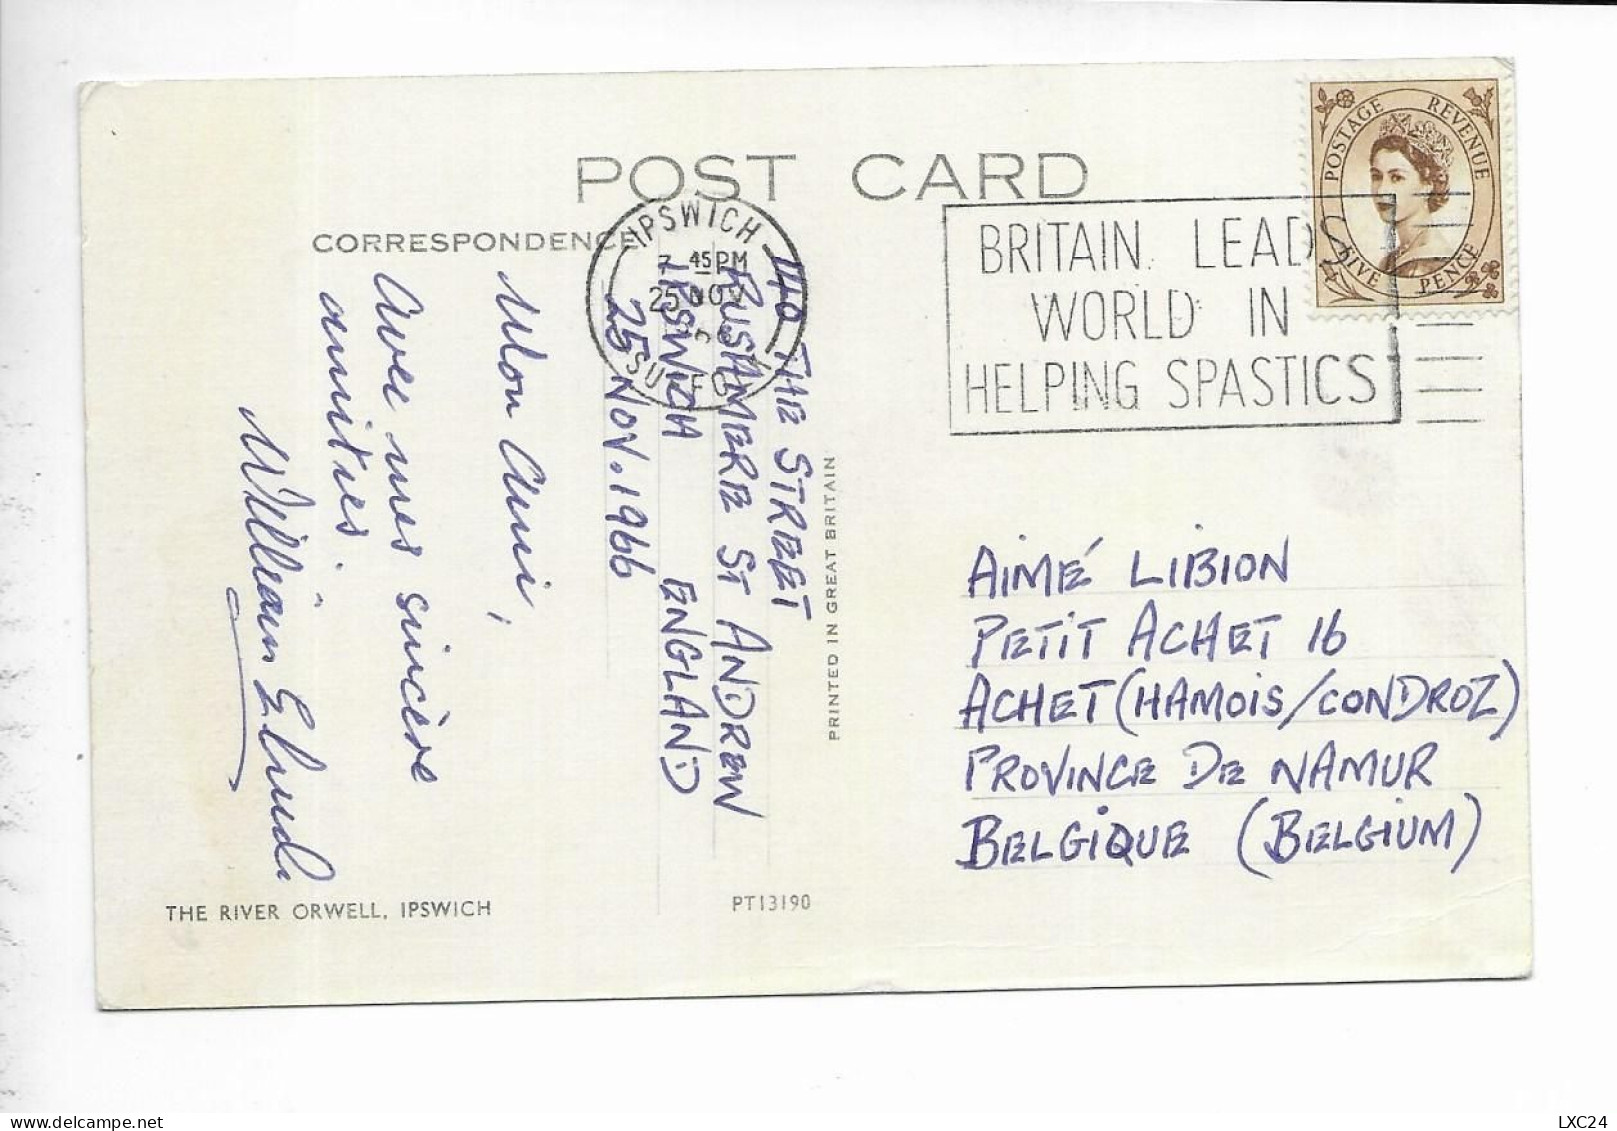 POST CARD
CORRESPONDENCE
IPSWICH
7 45 PM
25 NOV
SUFFOLK
BRITAIN LEADS
WORLD IN
HELPING SPASTICS
POSTAGE REVENUE
FIVE PENCE
140 THE STREET
RUSHMERE ST ANDREW
IPSWICH ENGLAND
25 NOV. 1966
Mon Ami,
Avec mes sincère
amitiés.
William
PRINTED IN GREAT BRITAIN
AIMÉ LIBION
PETIT ACHET 16
ACHET (HAMOIS/CONDROZ)
PROVINCE DE NAMUR
BELGIQUE (BELGIUM)
THE RIVER ORWELL, IPSWICH
PT13190
www.delcampe.net
LXC24